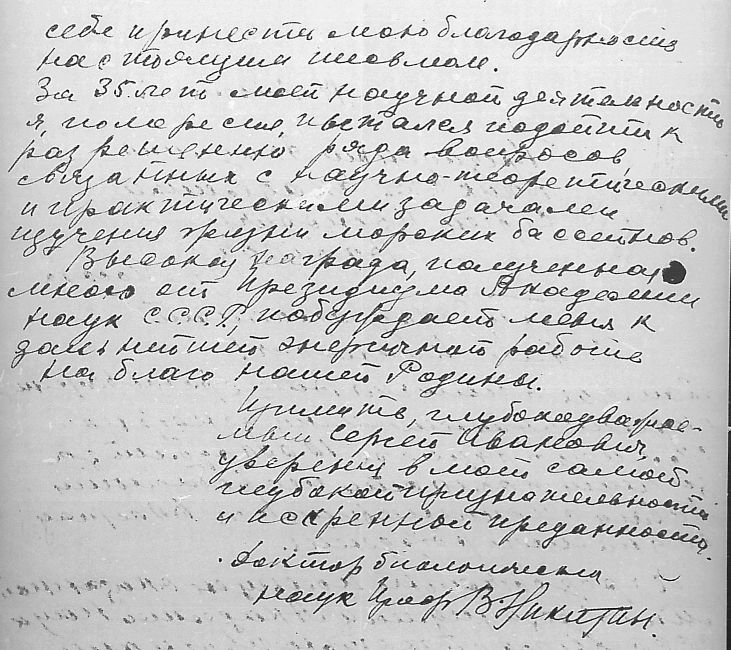 себе принести мою благодарность
настоящим письмом.
За 35 лет моей научной деятельности
я, по мере сил, пытался подойти к
разрешению ряда вопросов,
связанных с научно-теоретическими
и практическими задачами
изучения жизни морских бассейнов.
Высокая награда, полученная
мною от Президиума Академии
наук СССР, побуждает меня к
дальнейшей энергичной работе
на благо нашей Родины.
Примите, глубокоуважае-
мый Сергей Иванович,
уверения в моей самой
глубокой признательности
и искренной преданности.
Доктор биологических
наук Проф В. Никитин.